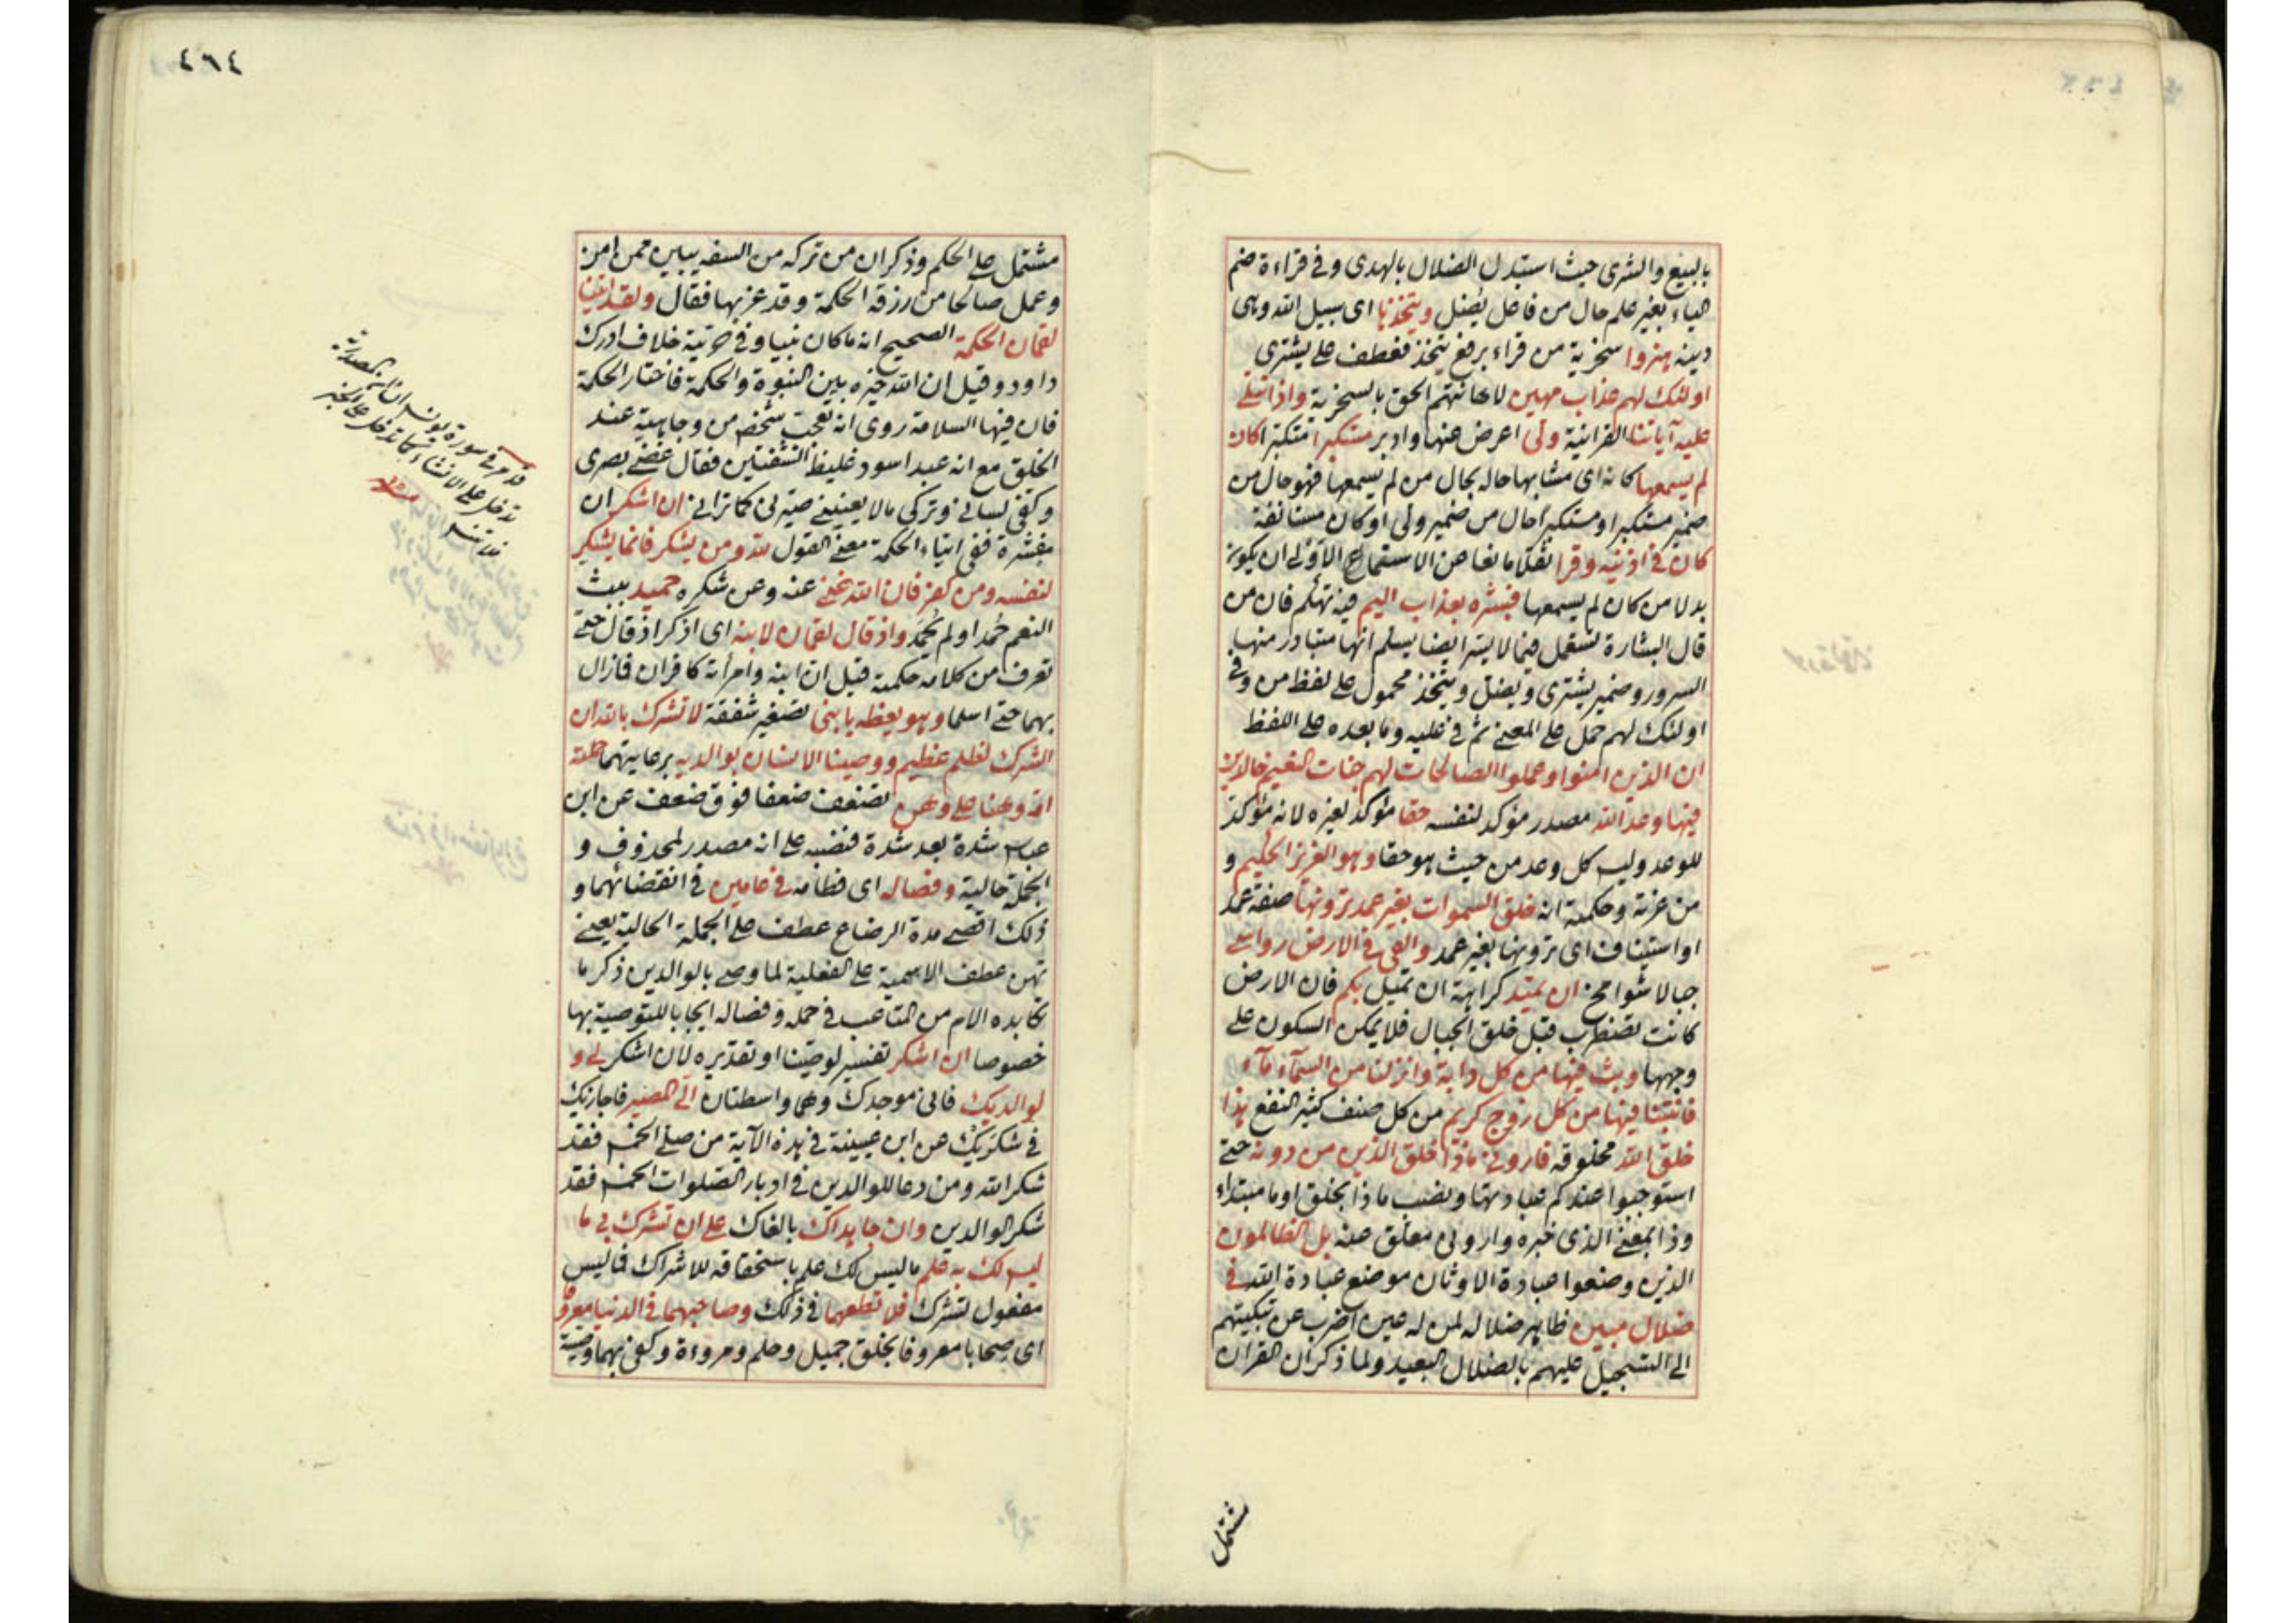 بالبيع والشرى حيث استبدل الضلال بالهدى وفى قراءة ضم
الياء بغير علم حال من فاعل يضل ويتخذها اى سبيل الله وهى
دينه هزوا سخرية من قراء برفع يتخذ فعطف على يشترى
اولئك لهم عذاب مهين لاهانتهم الحق بالسخرية واذا تتلى
عليه آياتنا القرانية ولى اعرض عنها وادبر مستكبرا متكبرا كان
لم يسمعها كانه اى مشابها حاله بحال من لم يسمعها فهو حال من
ضمير مستكبرا ومستكبرا حال من ضمير ولى او كان مستانفة
كان فى اذنيه وقرا ثقلا مانعا عن الاستماع الاولى ان يكون
بدلا من كان لم يسمعها فبشره بعذاب اليم فيه تهكم فان من
قال البشارة تستعمل فيما لا يسر ايضا يسلم انها متبادر منها
السرور وضمير يشترى ويضل ويتخذ محمول على لفظ من وفى
اولئك لهم حمل على المعنى ثم فى عليه وما بعده على اللفظ
ان الذين امنوا وعملوا الصالحات لهم جنات النعيم خالدين
فيها وعد الله مصدر مؤكد لنفسه حقا مؤكد لغيره لانه مؤكد
للوعد وليس كل وعد من حيث هو حقا وهو العزيز الحكيم و
من عزته وحكمته انه خلق السموات بغير عمد ترونها صفة عمد
او استيناف اى ترونها بغير عمد والقى فى الارض رواسى
جبالا شوامخ ان تميد كراهة ان تميل بكم فان الارض
كانت تضطرب قبل خلق الجبال فلا يمكن السكون على
وجهها وبث فيها من كل دابة وانزلنا من السمآء مآء
فانبتنا فيها من كل زوج كريم من كل صنف كثير النفع هذا
خلق الله مخلوقه فارونى ماذا خلق الذين من دونه حتى
استوجبوا عندكم عبادتها ونصب ماذا بخلق او ما مبتداء
وذا بمعنى الذى خبره وارونى معلق عنه بل الظالمون
الذين وضعوا عبادة الاوثان موضع عبادة الله فى
ضلال مبين ظاهر ضلاله لمن له عين اضرب عن تبكيتهم
الى التسجيل عليهم بالضلال البعيد ولما ذكر ان القران
مشتمل
٤٦٤
مشتمل على الحكم وذكر ان من تركه من السفه يباين ممن امن
وعمل صالحا من رزقه الحكمة وقد عز بها فقال ولقد اتينا
لقمان الحكمة الصحيح انه ما كان نبيا وفى حريته خلاف ادرك
داود وقيل ان الله خيره بين النبوة والحكمة فاختار الحكمة
فان فيها السلامة روى انه تعجب شخص من وجاهيته عند
الخلق مع انه عبد اسود غليظ الشفتين فقال غضى بصرى
وكفى لسانى وتركى مالا يعنينى صيرنى كما ترانى ان اشكر ان
مفسرة ففى ايتاء الحكمة معنى القول لله ومن يشكر فانما يشكر
لنفسه ومن كفر فان الله غنى عنه وعن شكره حميد ببث
النعم حمد او لم يحمد واذ قال لقمان لابنه اى اذكر اذ قال حتى
تعرف من كلامه حكمته قيل ان ابنه وامرأته كافران فما زال
بهما حتى اسلما وهو يعظه يا بنى تصغير شفقة لا تشرك بالله ان
الشرك لظلم عظيم ووصينا الانسان بوالديه برعايتهما حملته
امه وهنا على وهن تضعف ضعفا فوق ضعف عن ابن
عباس شدة بعد شدة فنصبه على انه مصدر لمحذوف و
الجملة حالية وفصاله اى فطامه فى عامين فى انقضائهما و
ذلك اقصى مدة الرضاع عطف على الجملة الحالية يعنى
تهن عطف الاسمية على الفعلية لما وصى بالوالدين ذكر ما
تكابده الام من المتاعب فى حمله وفصاله ايجابا للتوصية بها
خصوصا ان اشكر تفسير لوصينا او تقديره لان اشكر لى و
لوالديك فانى موجدك وهما واسطتان الى المصير فاجازيك
فى شكريك عن ابن عيينة فى هذه الآية من صلى الخمس فقد
شكر الله ومن دعا للوالدين فى ادبار الصلوات الخمس فقد
شكر الوالدين وان جاهداك بالغاك على ان تشرك بى ما
ليس لك به علم ما ليس لك علم باستحقاقه للاشراك فما ليس
مفعول لتشرك فلا تطعهما فى ذلك وصاحبهما فى الدنيا معروفا
اى صحابا معروفا بخلق جميل وحلم ومروءة وكفى بهما وصية
قد مر فى سورة يونس ان المصدرية
تدخل على الانشاء كما تدخل على الخبر